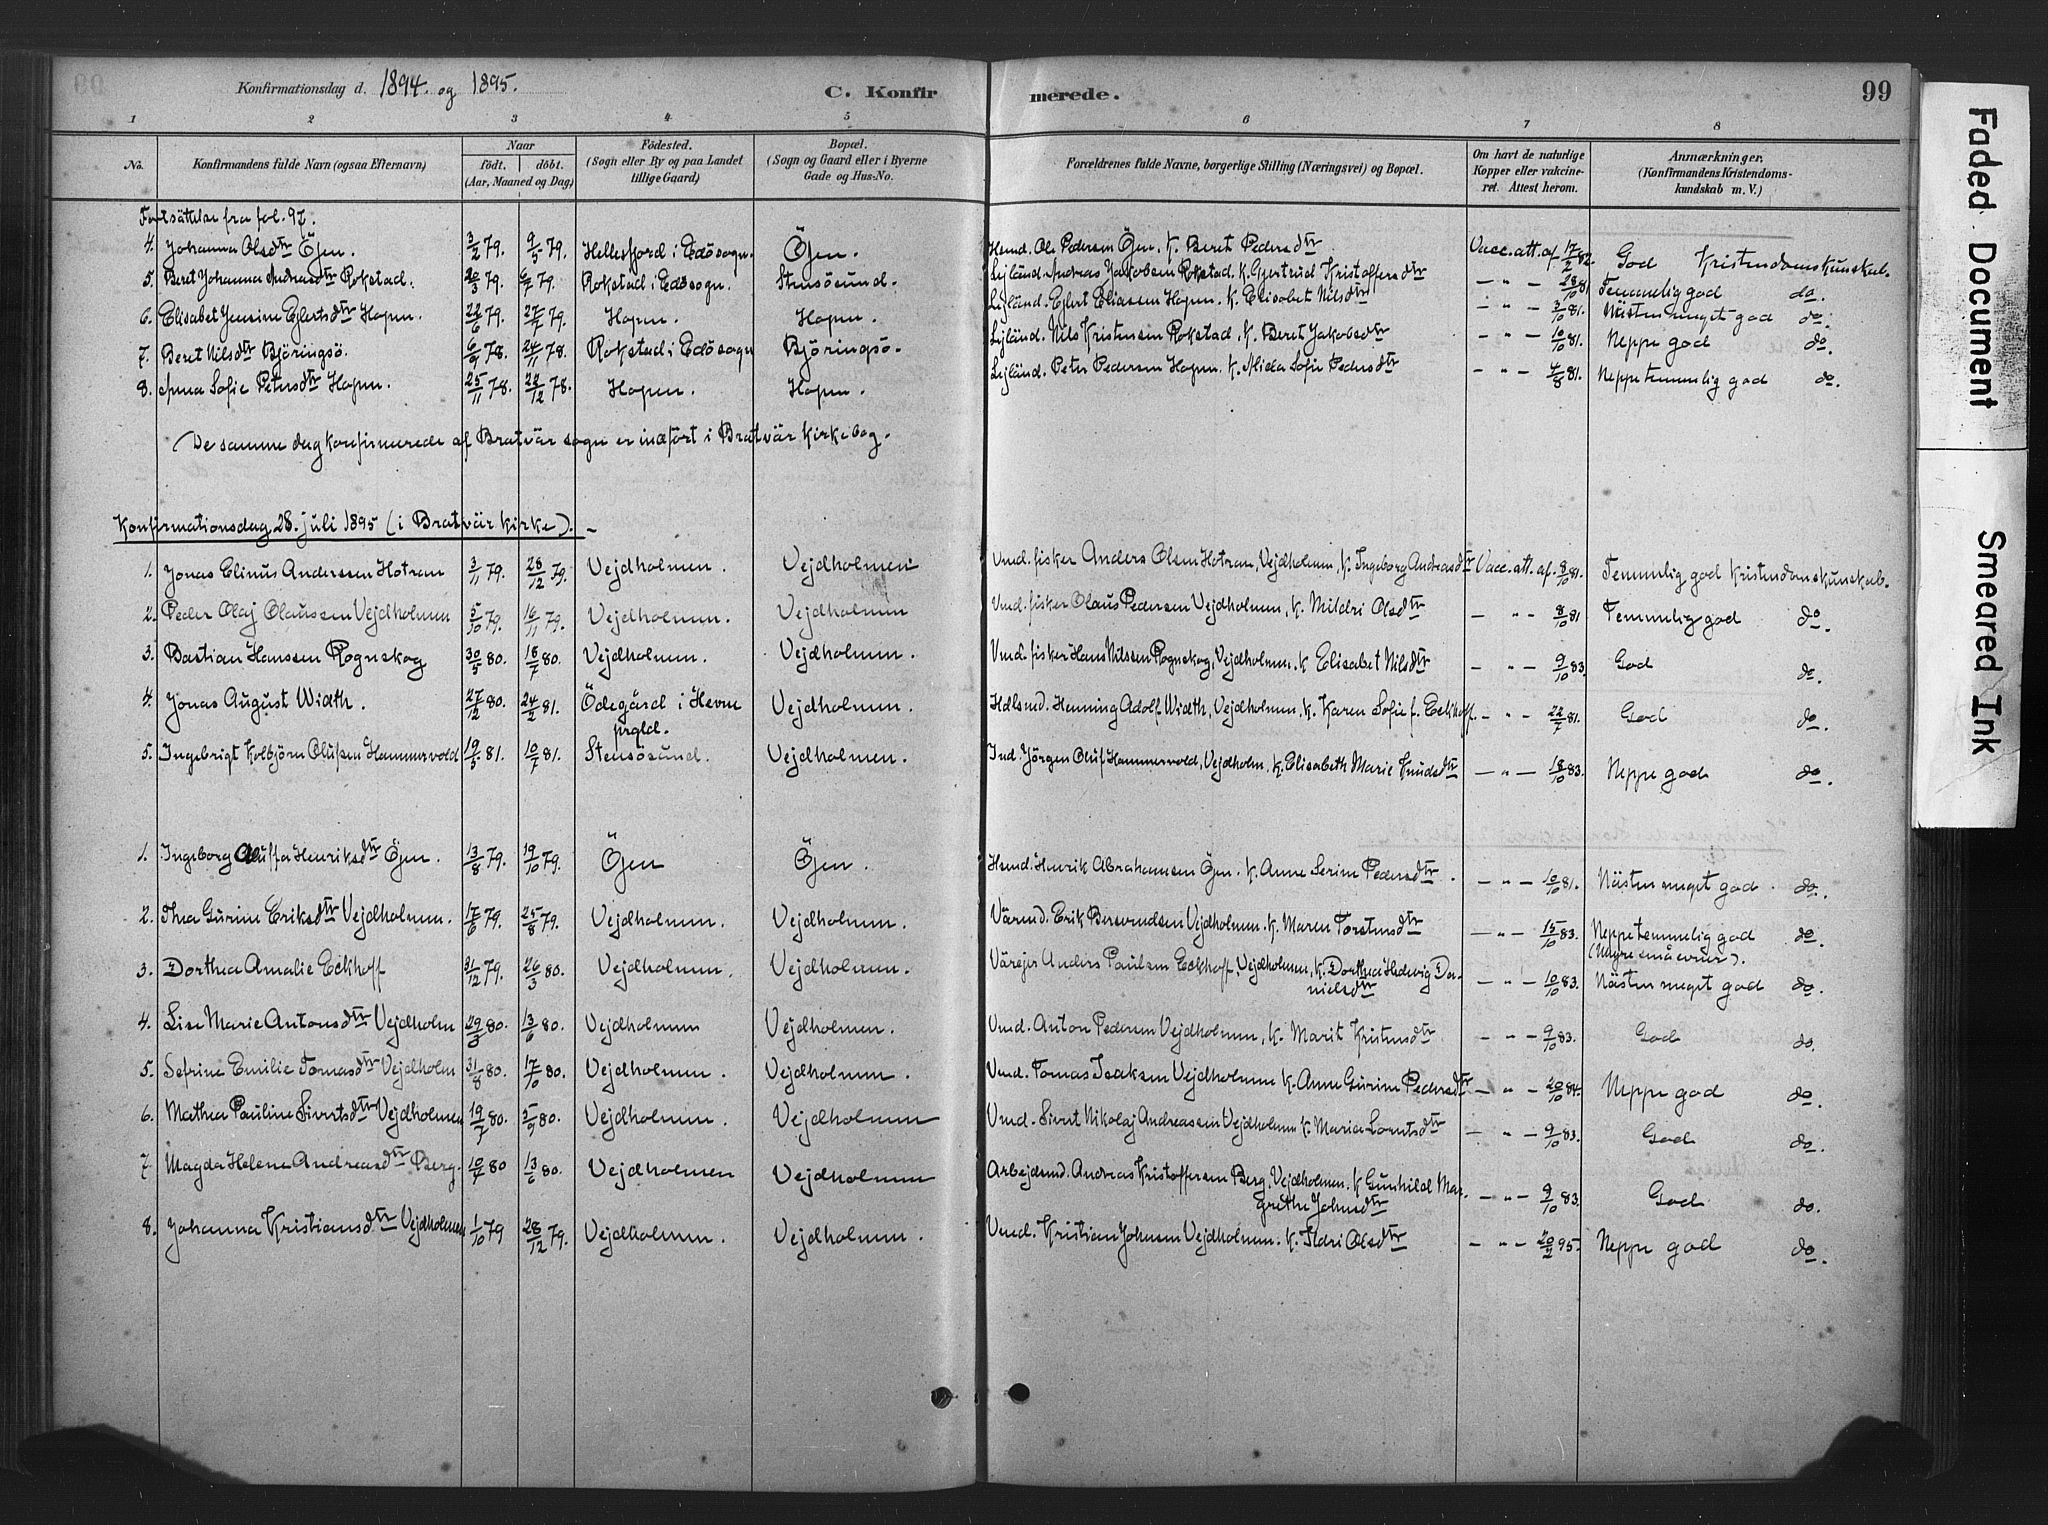 Konfirmationsdag d. 1894. og 1895. C. Konfirmerede. 99
1 2 3 4 5 6 7 8
No. Konfirmandens fulde Navn (ogsaa Efternavn) Naar Født. døbt. (Aar, Maaned og Dag) Födested. (Sogn eller By og paa Landet tillige Gaard) Bopæl. (Sogn og Gaard eller i Byerne Gade og Hus-No. Forældrenes fulde Navne, borgerlige Stilling (Næringsvei) og Bopæl. Om havt de naturlige Kopper eller vaccineret. Attest herom. Anmærkninger. (Konfirmandens Kristendomskundskab m. V.)
Fortsättelse fra fol. 97.
4. Johanna Olsdtr Öjen. 3/2 79. 9/5 79. Hellesfjord i Edösogn. Öjen. Hsmd. Ole Pedersen Öjen. K. Beret Pedersdtr Vacc. att. af 17/2 82. God Kristendomskunskab.
5. Beret Johanna Andreasdtr Rokstad. 20/3 79. 6/7 79. Rokstad i Edösogn. Stensösund. Lejländ. Andreas Jakobsen Rokstad. K. Gjertrud Kristoffersdtr — " — 28/10 81 Temmelig god do.
6. Elisabet Jensine Eglertsdtr Hopen. 22/6 79. 27/7 79. Hopen. Hopen. Lejländ. Eglert Eliassen Hopen. K. Elisabet Nilsdtr — " — 3/10 81. Nästen meget god do.
7. Beret Nilsdtr Björingsö. 6/9 78. 24/11 78. Rokstad i Edösogn Björingsö. Lejländ. Nils Kristensen Rokstad. K. Beret Jakobsdtr — " — 10/10 81. Neppe god do.
8. Anna Sofie Petersdtr Hopen. 25/11 78. 22/12 78. Hopen. Hopen. Lejländ. Peter Pedersen Hopen. K. Mida Sofie Pedersdtr — " — 4/8 81. Neppe temmelig god do.
De samme dag konfirmerede af Bratvär sogn er indfört i Bratvär Kirkebog.
Konfirmationsdag 28. juli 1895 (i Bratvär kirke). —
1. Jonas Elinus Anderssen Hotran 3/11 79. 28/12 79. Vejdholmen. Vejdholmen Vmd. fisker Anders Olsen Hotran, Vejdholmen, K. Ingeborg Andreasdtr Vacc. att. af. 8/10 81. Temmelig god Kristendomskunskab.
2. Peder Olaj Olaussen Vejdholmen 5/10 79. 16/11 79. Vejdholmen. Vejdholmen Vmd. fisker Olaus Pedersen Vejdholmen, K. Mildri Olsdtr — " — 8/10 81 Temmelig god do.
3. Bastian Hanssen Rognskog 30/5 80. 18/7 80. Vejdholmen. Vejdholmen. Vmd. fisker Hans Nilssen Rognskog, Vejdholmen. K. Elisabet Nilsdtr — " — 9/10 83. God do.
4. Jonas August Width. 27/12 80. 24/2 81. Ödegård i Hevne prgld. Vejdholmen. Hdlsmd. Henning Adolf Width, Vejdholmen, K. Karen Sofie f. Eckhoff. — " — 22/7 81. God do.
5. Ingebrigt Kolbjörn Olufsen Hammervold 19/3 81. 10/7 81. Stensösund. Vejdholmen. Ind. Jörgen Oluf Hammervold, Vejdholm. K. Elisabeth Marie Knudsdtr — " — 18/10 83. Neppe god do.
1. Ingeborg Oluffa Henriksdtr Öjen. 13/8 79. 19/10 79. Öjen Öjen. Hsmd. Henrik Abrahamsen Öjen. K. Anne Serine Pedersdtr. — " — 10/10 81. Nästen meget god. do.
2. Thea Gurine Eriksdtr Vejdholmen. 17/6 79. 25/8 79. Vejdholmen. Vejdholmen. Värmd. Erik Bersvendsen Vejdholmen. K. Maren Torstensdtr — " — 15/10 83. Neppe temmelig god do.
3. Dorthea Amalie Eckhoff 31/12 79. 26/3 80. Vejdholmen. Vejdholmen. Värejer Anders Paulsen Eckhoff, Vejdholmen, K. Dorthea Hedevig Danielsdtr — " — 10/10 83. Nästen meget god do.
4. Lise Marie Antonsdtr Vejdholm 29/3 80. 13/6 80. Vejdholmen Vejdholmen. Vmd. Anton Pedersen Vejdholmen, K. Marit Kristensdtr. — " — 9/10 83. God do.
5. Sefrine Emilie Tomasdtr Vejdholm 31/8 80. 17/10 80. Vejdholmen. Vejdholmen. Vmd. Tomas Isaksen Vejdholmen K. Anne Gurine Pedersdtr — " — 20/10 84. Neppe god do.
6. Mathea Pauline Sivertsdtr Vejdholmen 19/7 80. 5/9 80. Vejdholmen. Vejdholmen Vmd. Sivert Nikolaj Andreassen Vejdholmen K. Maria Lorntsdtr — " — 9/10 83. God do.
7. Magda Helene Andreasdtr Berg. 10/4 80 13/6 80. Vejdholmen Vejdholmen Arbejdsmd. Andreas Kristoffersen Berg, Vejdholmen. K. Gunhild Margrethe Johnsdtr — " — 9/10 83. God do.
8. Johanna Kristiansdtr Vejdholmen 1/10 79 28/12 79. Vejdholmen. Vejdholmen. Vmd. Kristian Johnsen Vejdholmen. K. Ildri Olsdtr — " — 20/2 95. Neppe god do.
Faded Document
Smeared Ink